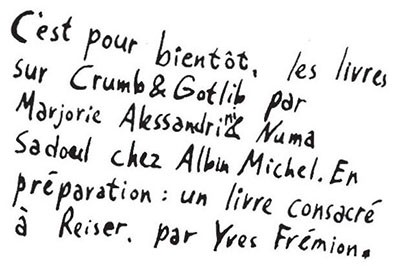 C'est pour bientôt, les livres
sur Crumb & Gotlib par
Marjorie Alessandrini & Numa
Sadoul chez Albin Michel. En
préparation : un livre consacré
à Reiser, par Yves Frémion.